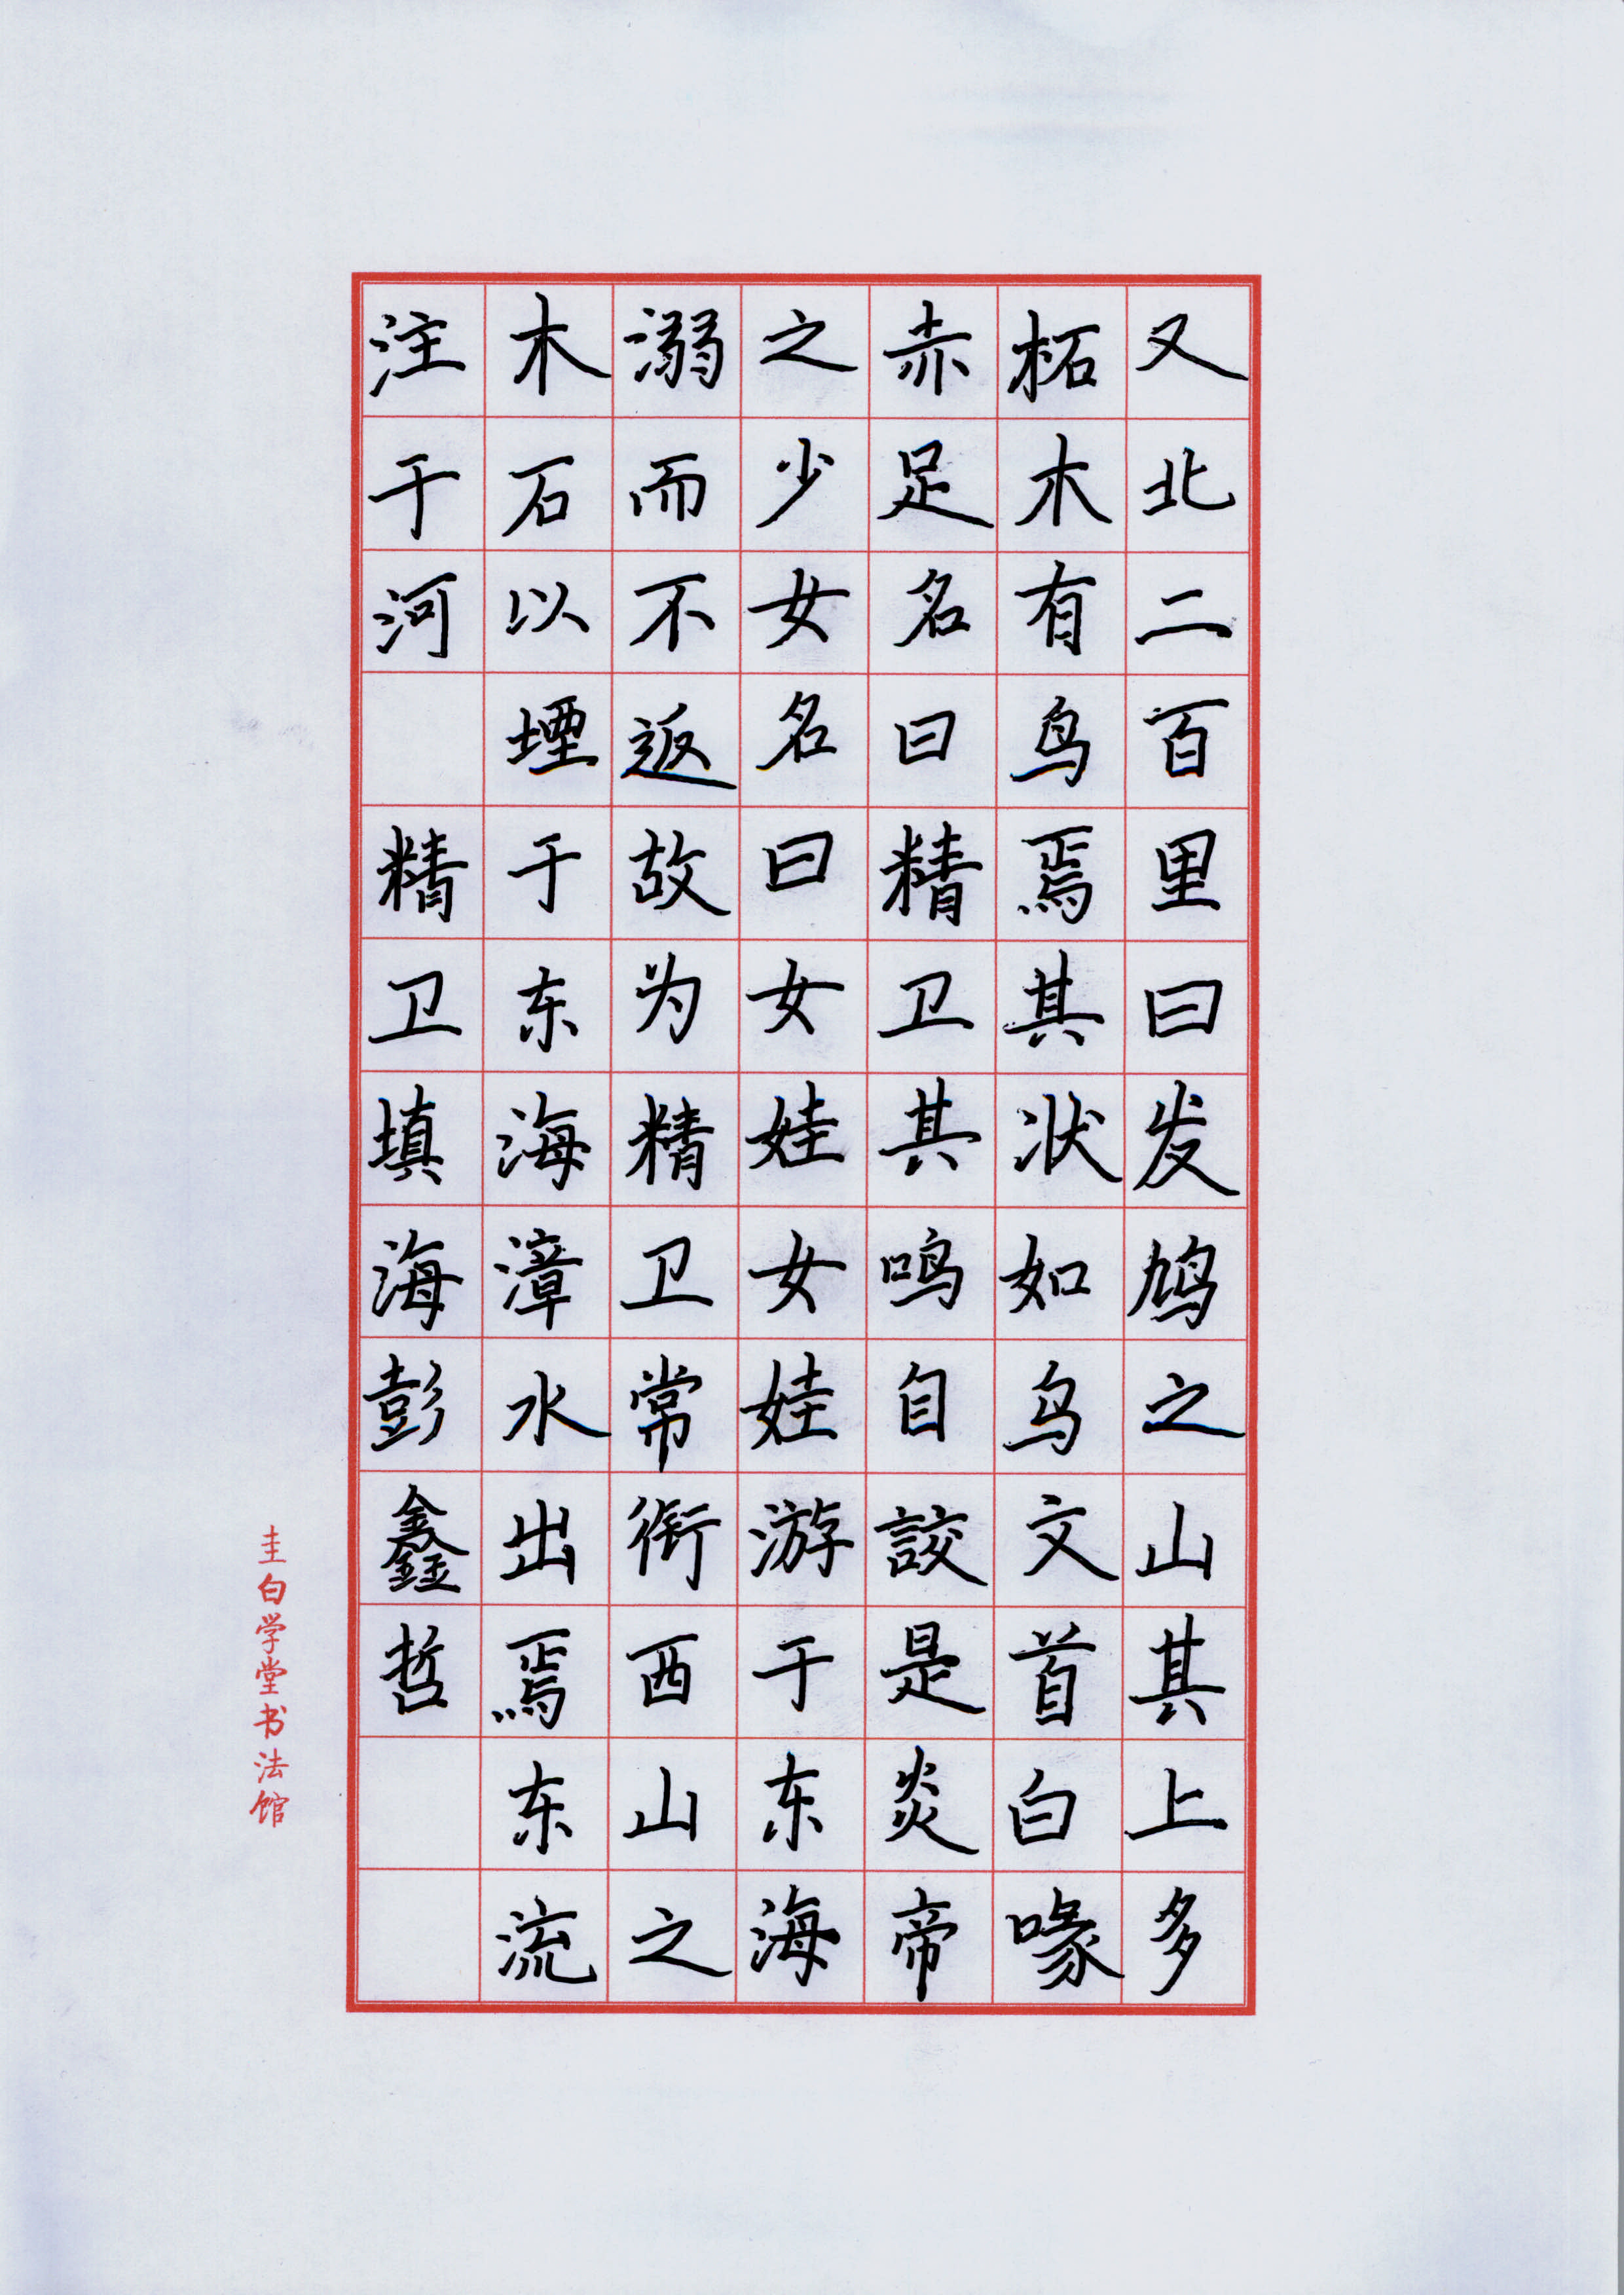 又北二百里曰发鸠之山其上多
柘木有鸟焉其状如乌文首白喙
赤足名曰精卫其鸣自詨是炎帝
之少女名曰女娃女娃游于东海
溺而不返故为精卫常衔西山之
木石以堙于东海漳水出焉东流
注于河 精卫填海彭鑫哲
圭白学堂书法馆